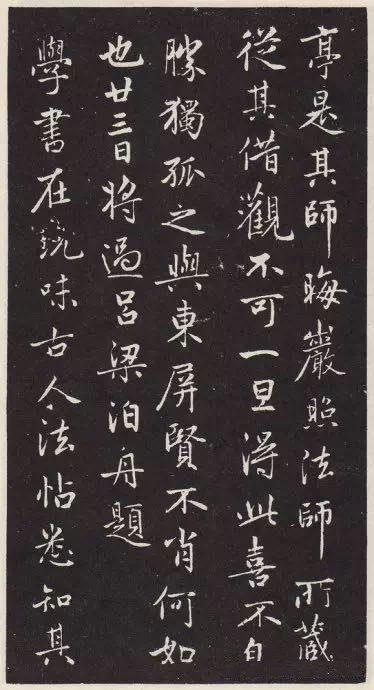 亭是其師晦巖照法師所藏
從其借觀不可一旦得此喜不自
勝獨孤之與東屏賢不肖何如
也廿三日將過呂梁泊舟題
學書在玩味古人法帖悉知其